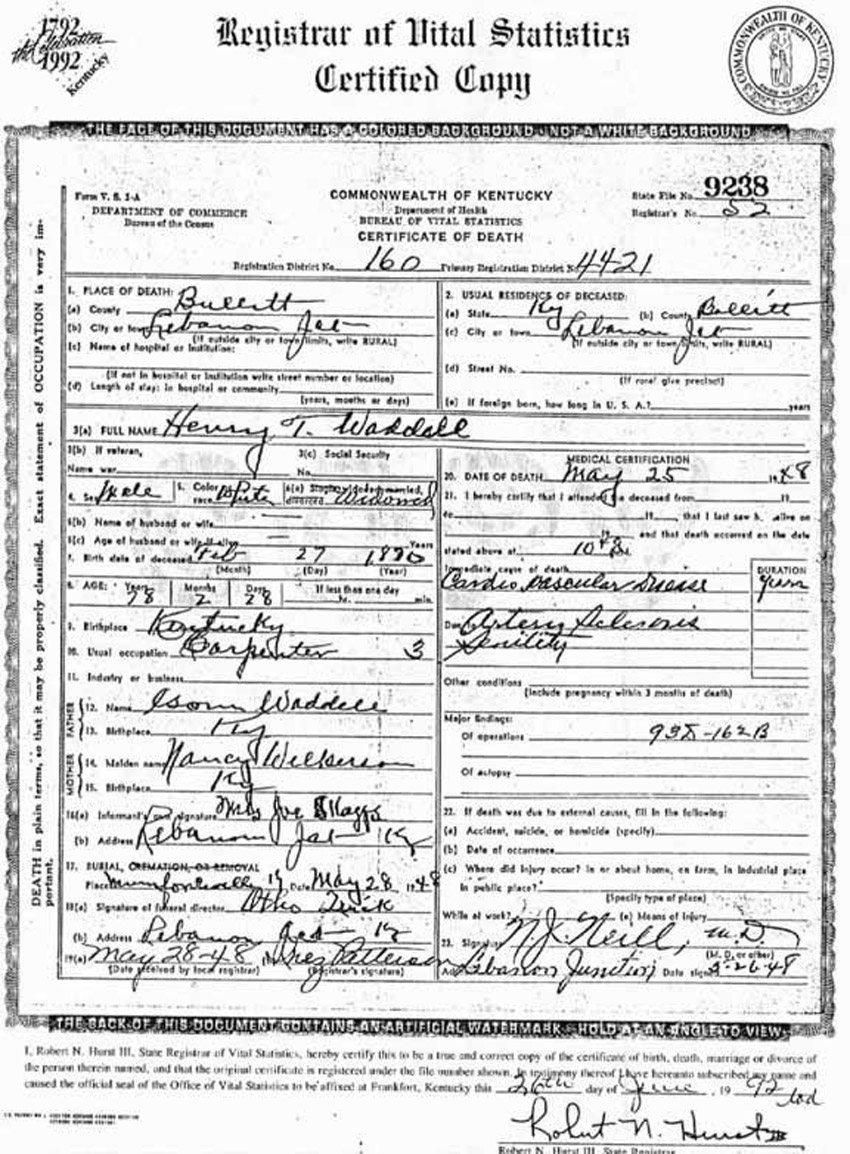 1792
the Celebration
1992
Kentucky
Registrar of Vital Statistics
Certified Copy
COMMONWEALTH OF KENTUCKY
THE FACE OF THIS DOCUMENT HAS A COLORED BACKGROUND - NOT A WHITE BACKGROUND
DEATH in plain terms, so that it may be properly classified. Exact statement of OCCUPATION is very im-
portant.
Form V. S. 1-A
DEPARTMENT OF COMMERCE
Bureau of the Census
COMMONWEALTH OF KENTUCKY
Department of Health
BUREAU OF VITAL STATISTICS
CERTIFICATE OF DEATH
State File No. 9238
Registrar's No. 52
Registration District No. 160 Primary Registration District No. 4421
1. PLACE OF DEATH:
(a) County Bullitt
(b) City or town Lebanon Jct
(If outside city or town limits, write RURAL)
(c) Name of hospital or institution:
(If not in hospital or institution write street number or location)
(d) Length of stay: in hospital or community
(years, months or days)
2. USUAL RESIDENCE OF DECEASED:
(a) State Ky (b) County Bullitt
(c) City or town Lebanon Jct
(If outside city or town limits, write RURAL)
(d) Street No.
(If rural give precinct)
(e) If foreign born, how long in U. S. A.? years
3(a) FULL NAME Henry T. Waddell
3(b) If veteran,
Name war
3(c) Social Security
No.
4. Sex Male 5. Color race White 6(a) Single, widowed, married, divorced Widowed
6(b) Name of husband or wife
6(c) Age of husband or wife if alive Years
7. Birth date of deceased Feb 27 1870
(Month) (Day) (Year)
8. AGE: Years Months Days If less than one day
78 2 28 hr. min.
9. Birthplace Kentucky
10. Usual occupation Carpenter 3
11. Industry or business
FATHER
12. Name Isom Waddell
13. Birthplace Ky
MOTHER
14. Maiden name Nancy Wilkerson
15. Birthplace Ky
16(a) Informant's own signature Mrs Joe Skaggs
(b) Address Lebanon Jct Ky
17. BURIAL, CREMATION, OR REMOVAL
Place Munfordville Ky Date May 28 1948
18(a) Signature of funeral director Otho
(b) Address Lebanon Jct Ky
19(a) May 28-48 (b) Patterson
(Date received by local registrar) (Registrar's signature)
MEDICAL CERTIFICATION
20. DATE OF DEATH May 25 1948
21. I hereby certify that I attended the deceased from 19
to 19 that I last saw h alive on
19 and that death occurred on the date
stated above at 10
Immediate cause of death
Cardio vascular Disease
DURATION
years
Due Artery Sclerosis
Senility
Other conditions
(Include pregnancy within 3 months of death)
Major findings:
Of operations 93X-162B
Of autopsy
22. If death was due to external causes, fill in the following:
(a) Accident, suicide, or homicide (specify)
(b) Date of occurrence
(c) Where did injury occur? In or about home, on farm, in industrial place
in public place?
(Specify type of place)
While at work? (e) Means of Injury
23. Signature N. J. Neill, M.D.
(M. D. or other)
Lebanon Junction Date signed 5-26-48
THE BACK OF THIS DOCUMENT CONTAINS AN ARTIFICIAL WATERMARK - HOLD AT AN ANGLE TO VIEW
I, Robert N. Hurst III, State Registrar of Vital Statistics, hereby certify this to be a true and correct copy of the certificate of birth, death, marriage or divorce of
the person therein named, and that the original certificate is registered under the file number shown. In testimony thereof I have hereunto subscribed my name and
caused the official seal of the Office of Vital Statistics to be affixed at Frankfort, Kentucky this 26th day of June, 19 92
Robert N. Hurst III
Robert N. Hurst III, State Registrar